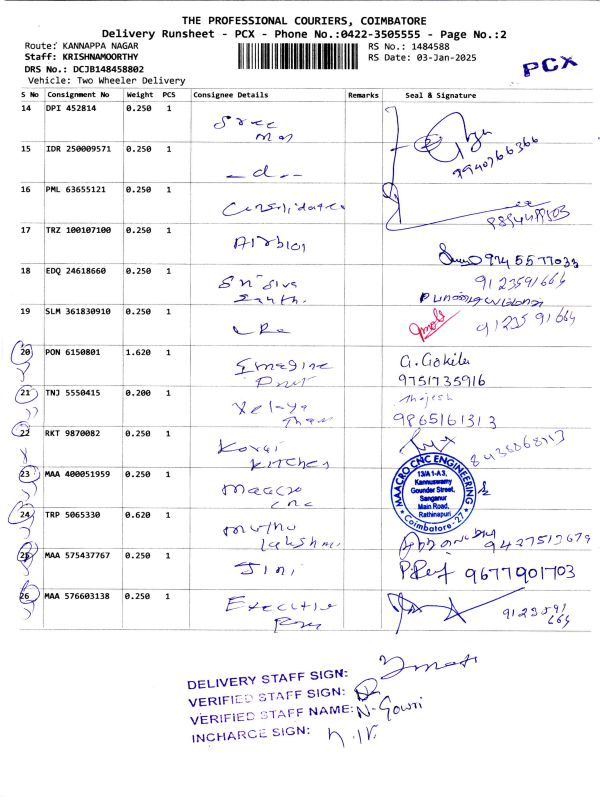 THE PROFESSIONAL COURIERS, COIMBATORE
Delivery Runsheet - PCX - Phone No.:0422-3505555 - Page No.:2
Route: KANNAPPA NAGAR
RS No.: 1484588
Staff: KRISHNAMOORTHY
RS Date: 03-Jan-2025
DRS No.: DCJB148458802
Vehicle: Two Wheeler Delivery
PCX
S No Consignment No Weight PCS Consignee Details Remarks Seal & Signature
14 DPI 452814 0.250 1 Sree
9940766366
15 IDR 250009571 0.250 1 -d-
16 PML 63655121 0.250 1
17 TRZ 100107100 0.250 1 Airbios
18 EDQ 24618660 0.250 1 Sri Siva
9123591664
19 SLM 361830910 0.250 1
9123591664
20 PON 6150801 1.620 1 Imagine
Print
G. Gokila
9751735916
21 TNJ 5550415 0.200 1 Velaya
Thajesh
9865161313
22 RKT 9870082 0.250 1 Kovai
Kitchen
23 MAA 400051959 0.250 1 Maacro
cnc
MAACRO CNC ENGINEERING
13/A1-A3,
Kannuswamy
Gounder Street,
Sanganur
Main Road,
Rathinapuri
Coimbatore-27
24 TRP 5065330 0.620 1 Muthu
Lakshmi
9437513679
25 MAA 575437767 0.250 1 Jini
9677901703
26 MAA 576603138 0.250 1 Executive
9123591
664
DELIVERY STAFF SIGN:
VERIFIED STAFF SIGN:
VERIFIED STAFF NAME: N-Gowri
INCHARGE SIGN: